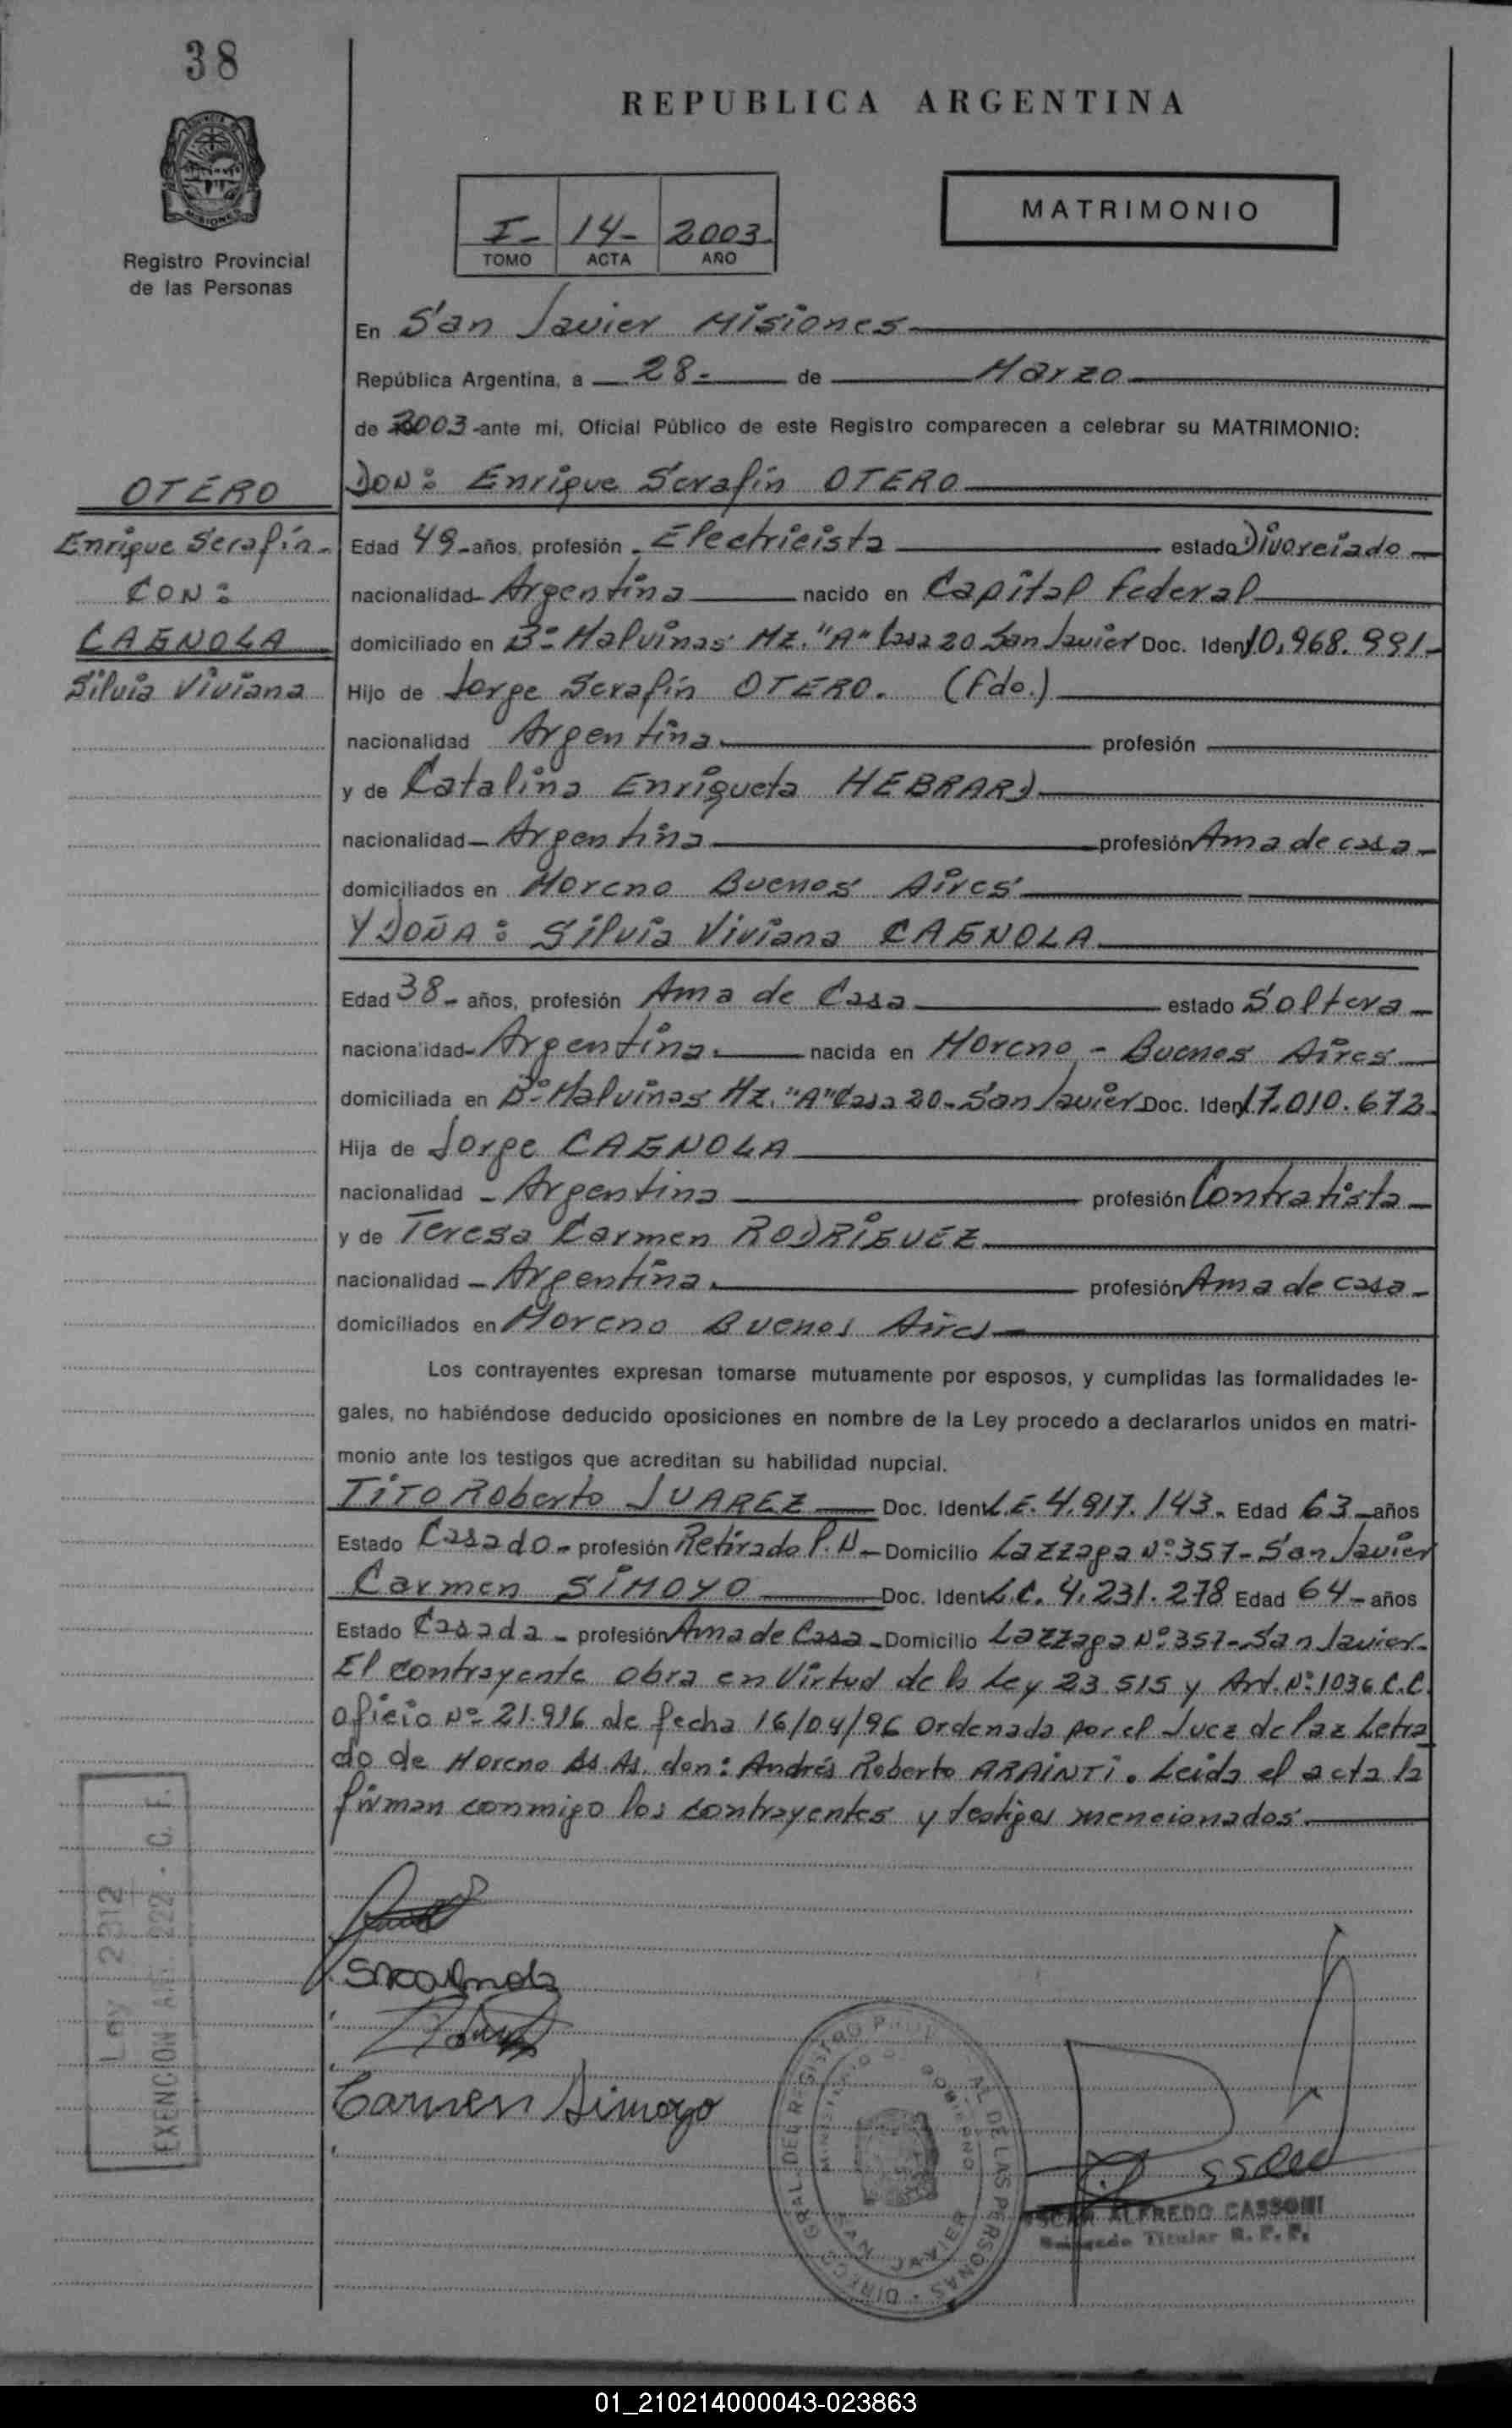 38
REPUBLICA ARGENTINA
MISIONES
Registro Provincial
de las Personas
I- 14- 2003-
TOMO ACTA AÑO
MATRIMONIO
En San Javier Misiones
República Argentina, a 28- de Marzo
de 2003 -ante mi, Oficial Público de este Registro comparecen a celebrar su MATRIMONIO:
OTERO
Enrique Serafín-
CON:
CAGNOLA
Silvia Viviana
DON: Enrique Serafín OTERO
Edad 49-años, profesión - Electricista estado Divorciado
nacionalidad Argentina nacido en Capital Federal
domiciliado en Bº Malvinas Mz. "A" Casa 20 San Javier Doc. Iden 10.968.991-
Hijo de Jorge Serafín OTERO. (Fdo.)
nacionalidad Argentina. profesión
y de Catalina Enriqueta HEBRARD
nacionalidad - Argentina profesión Ama de casa-
domiciliados en Moreno Buenos Aires
Y DOÑA: Silvia Viviana CAGNOLA
Edad 38- años, profesión Ama de Casa estado Soltera-
nacionalidad- Argentina. nacida en Moreno - Buenos Aires
domiciliada en Bº Malvinas Mz. "A" Casa 20- San Javier Doc. Iden 17.010.673.
Hija de Jorge CAGNOLA
nacionalidad - Argentina profesión Contratista-
y de Teresa Carmen RODRIGUEZ
nacionalidad - Argentina. profesión Ama de casa-
domiciliados en Moreno Buenos Aires
Los contrayentes expresan tomarse mutuamente por esposos, y cumplidas las formalidades le-
gales, no habiéndose deducido oposiciones en nombre de la Ley procedo a declararlos unidos en matri-
monio ante los testigos que acreditan su habilidad nupcial.
TITO Roberto JUAREZ Doc. Ident L.E. 4.917.143. Edad 63-años
Estado Casado- profesión Retirado P.N- Domicilio Lazzaga Nº 357- San Javier
Carmen SIMOYO Doc. Ident L.C. 4.231.278 Edad 64-años
Estado Casada- profesión Ama de Casa- Domicilio Lazzaga Nº 357- San Javier-
El contrayente obra en virtud de la Ley 23.515 y Art. Nº 1036 C.C.
oficio Nº 21.916 de fecha 16/04/96 Ordenada por el Juez de Paz Letra
do de Moreno Bs As. don: Andrés Roberto ARAINTI. Leida el acta la
firman conmigo los contrayentes y testigos mencionados.
Ley 2312
EXENCION Art. 322 - C. F.
Carmen Simoyo
DIRECC. GRAL. DEL REGISTRO DE LAS PERSONAS
MINISTERIO GOBIERNO
SAN JAVIER
ALFREDO CASSONI
Titular R. P. P.
01_210214000043-023863